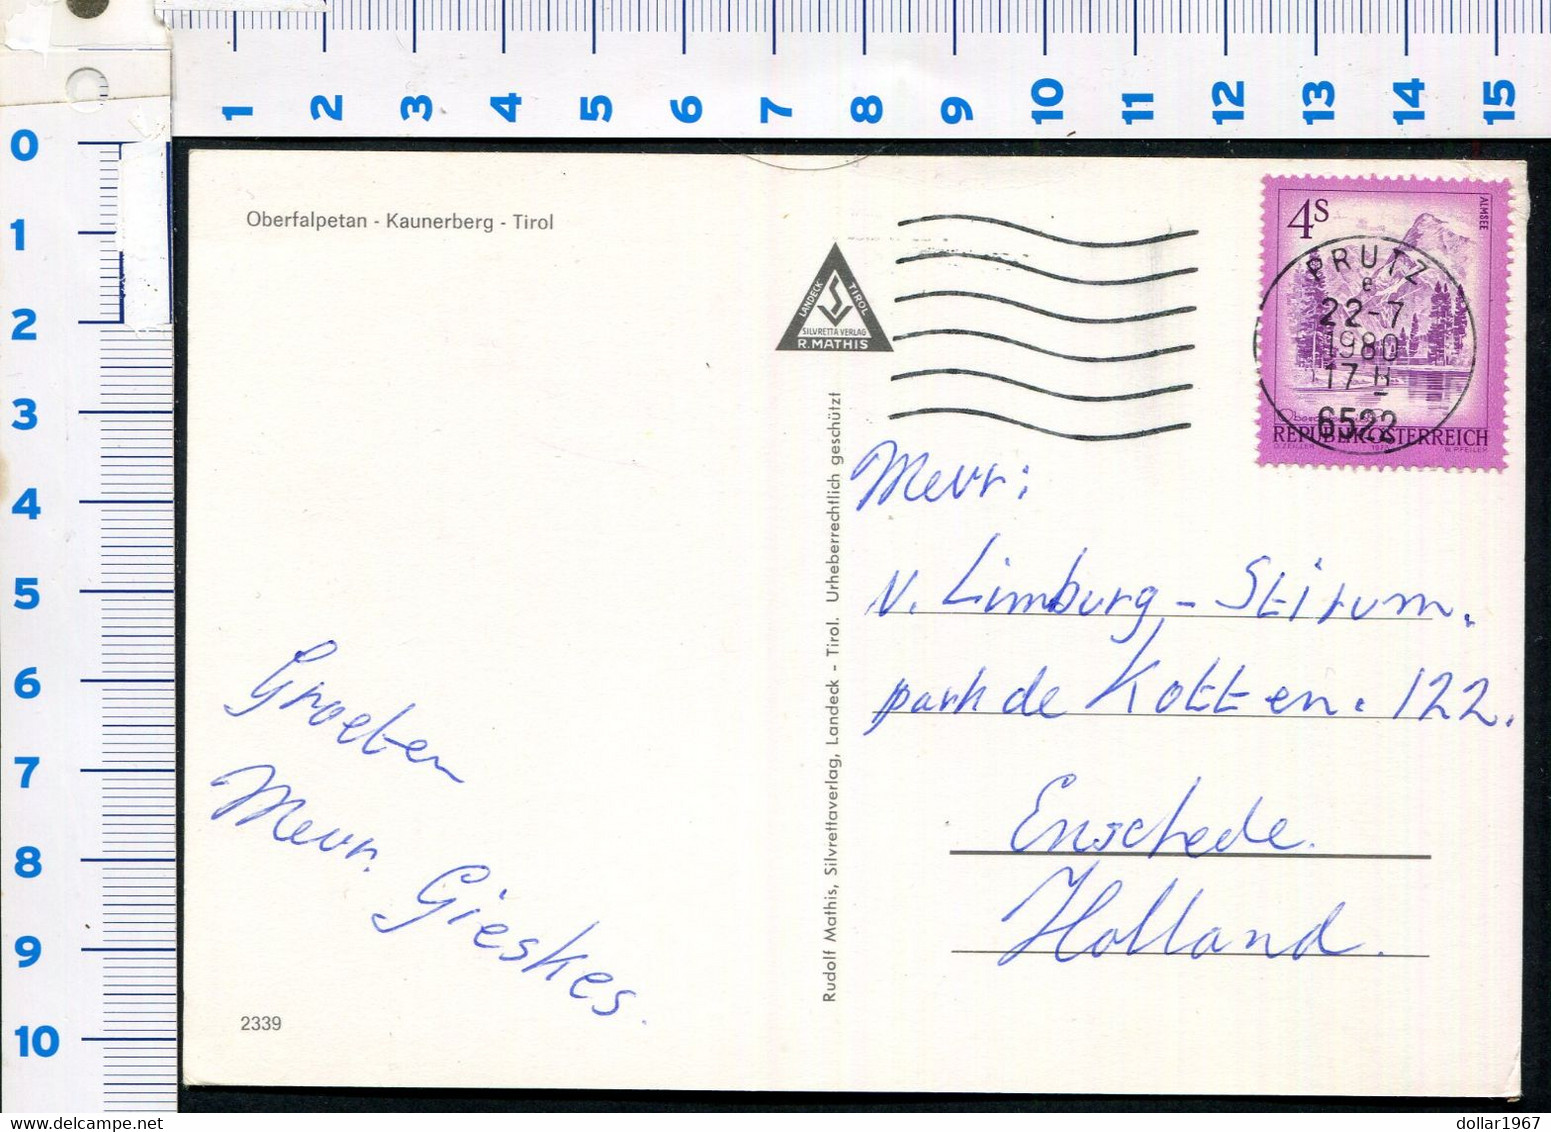 1 2 3 4 5 6 7 8 9 10 11 12 13 14 15
0
1
2
3
4
5
6
7
8
9
10
Oberfalpetan - Kaunerberg - Tirol
LANDECK TIROL
SILVRETTA VERLAG
R. MATHIS
4S
ALMSEE
PRUTZ
e
22-7
1980
17
6522
REPUBLIK ÖSTERREICH
O. ZEILLER 1973 W. PFEILER
Rudolf Mathis, Silvrettaverlag, Landeck - Tirol. Urheberrechtlich geschützt
Mevr:
v. Limburg - Stirum.
park de Kotten. 122.
Enschede.
Holland.
Groeten
Mevr. Gieskes.
2339
dollar1967